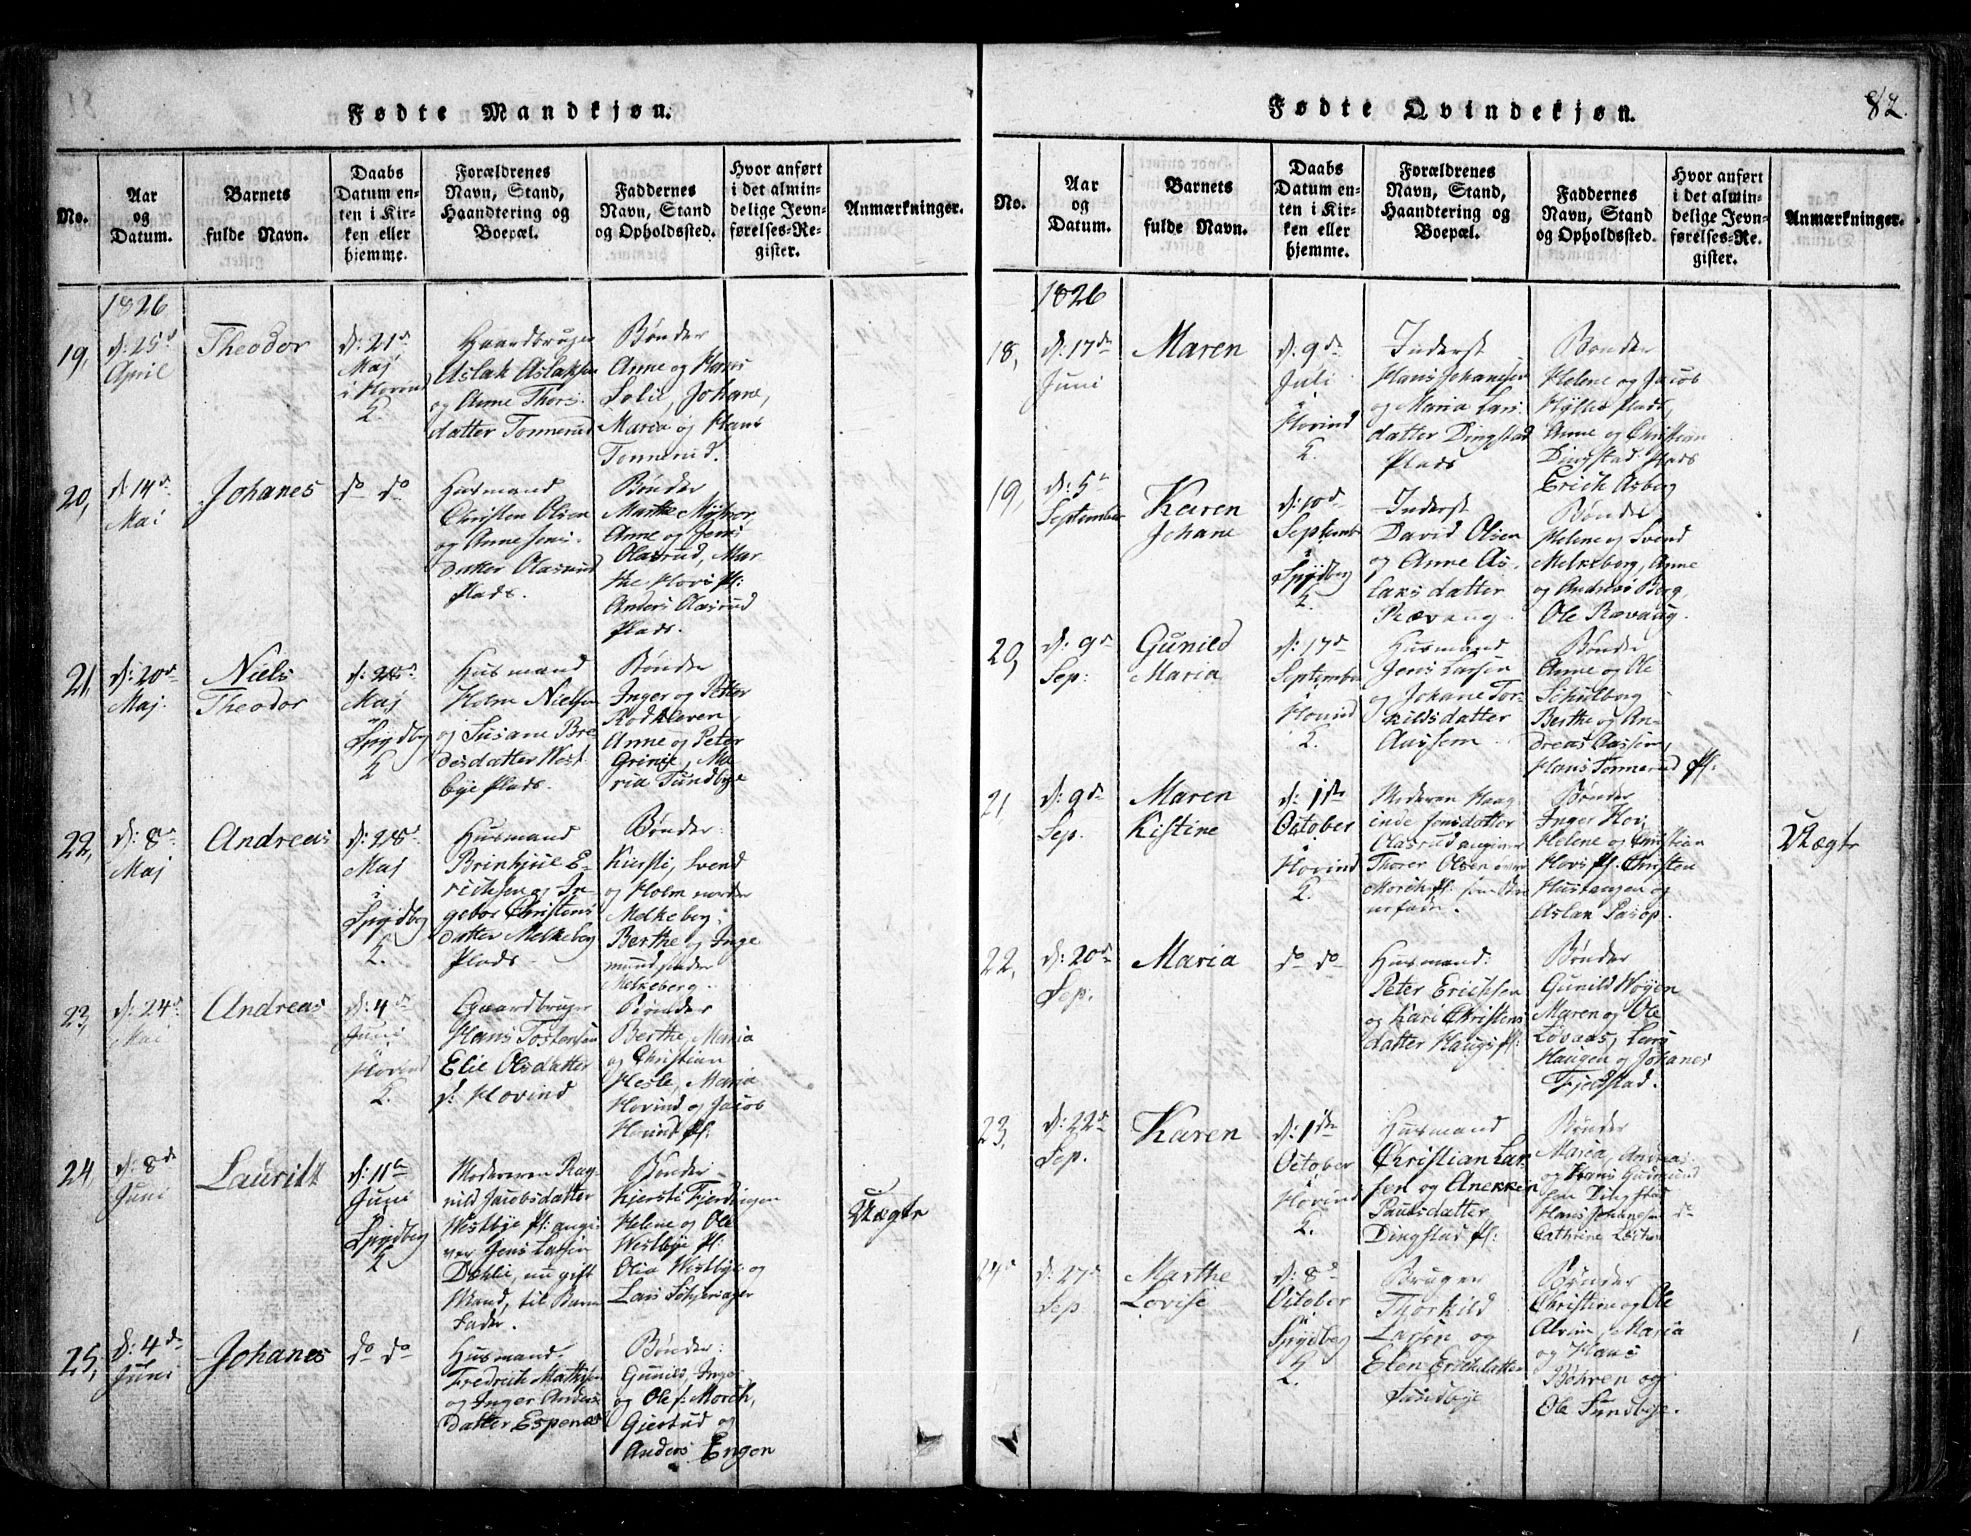 Fødte Mandkjøn.
No.
Aar og Datum.
Barnets fulde Navn.
Daabs Datum enten i Kirken eller hjemme.
Forældrenes Navn, Stand, Haandtering og Boepæl.
Faddernes Navn, Stand og Opholdssted.
Hvor anført i det almindelige Jevnførelses-Register.
Anmærkninger.
1826
19,
d: 25d
April
Theodor
d: 21d
Maj
K
Aslak Aslaksen
og Anne Thors-
datter Tonnerud
Bønder
Anne og Hans
Solie, Johane,
Maria og Hans
Tonnerud.
20,
d 14d
Mai
Johanes
do do
Husmand
Christen Olsen
og Anne Jens-
datter Olasrud
Plads.
Bønder
Marthe
Anne og Jens
Olasrud, Mar-
the Hovs Pl:
Anders Olasrud
Plads.
21,
d: 20d
Maj.
Niels
Theodor
d: 28d
Maj
i
Spydbg
K
Husmand
Holm Nielsen
og Susane Bre
desdatter West
bye Plads.
Bønder
Inger og Petter
Rodkleven,
Anne og Peter
Grinie, Ma
ria Sundbye
22,
d: 8d
Maj
Andreas
d: 28d
Maj
i
Spydbg
K.
Husmand
Brinhjul E-
richsen og In-
gebor Christens
datter Melkeberg
Plads
Bønder:
Kirsti, Svend
og Holm nordre
Melkeberg,
Berthe og Inge
mund søndre
Melkeberg.
23,
d: 24d
Mai
Andreas
d: 4d
Juni
i
Hovind
K.
Gaardbruger
Hans Tostensen
Elie Olsdatter
d: Hovind
Bønder
Berthe, Maria
og Christian
Hesle, Maria
Hovind og Jacob
Hovind Pl:
24
d: 8de
Juni
Lauritz
d: 11te
Juni
Spydbg
K
Moderen Rag
nild Jacobsdatter
Westbye Pl: angi-
ver Jens Larsen
Dahlie, nu gift
Mand, til Barne
Fader.
Bønder
Kjersti Fjerdingen
Helene og Ole
Westbye Pl:
Olia Westbye og
Lars
Uægte
25,
d: 4de
Juni
Johanes
do do
Husmand,
Fredrich Mathisen
og Inger Anders
datter Espenæs
Bønder:
Gunild, Inger
og Ole s: Morch,
Gjertrud og
Anders Engen
Fødte Qvindekjøn.
82.
No.
Aar og Datum.
Barnets fulde Navn.
Daabs Datum enten i Kirken eller hjemme.
Forældrenes Navn, Stand, Haandtering og Boepæl.
Faddernes Navn, Stand og Opholdssted.
Hvor anført i det almindelige Jevnførelses-Register.
Anmærkninger.
1826
18,
d: 17de
Juni
Maren
d: 9de
Juli
i
Hovind
K.
Inderst
Hans Johanesen
og Maria Lars-
datter Dingstad
Plads
Bønder
Helene og Jacob
Plads,
Anne og Christian
Dingstad Plads
Erich Asberg
19,
d: 5te
September
Karen
Johane
d: 10d
September
i
Spydberg
K.
Inderst
David Olsen
og Anne As-
laksdatter
Rævaug
Bønder
Helene og Svend
Melkeberg, Anne
og Andreas Berg,
Ole Rævaug.
20,
d: 9de
Sep:
Gunild
Maria
d: 17d
September
i
Hovind
K.
Husmand
Jens Larsen
og Johane Tor-
kildsdatter
Aassem
Bønder
Anne og Ole
Schulberg
Berthe og An-
dreas Aassem,
Hans Tonnerud Pl:
21
d: 9de
Sep.
Maren
Kistine
d: 1ste
October
i
Hovind
K.
Moderen Haag
inde Jensdatter
Olasrud angiver
Thorer Olsen
Bønder
Inger Hov,
Helene og Christian
Hovs Pl. Christen
Hustangen og
Aslak
Uægte
22,
d: 20de
Sep.
Maria
do do
Husmand:
Peter Erichsen
og Kari Christens
datter Haugs Pl:
Bønder
Gunild Høyen
Maren og Ole
Løvaas, Lars
Haugen og Johanes
Fjeldstad.
23,
d: 22d
Sep.
Karen
d: 1ste
October
i
Hovind
K.
Husmand
Christian Lar
sen og Anekken
Paulsdatter
Dingstad Pl:
Bønder
Maria, Andreas
og Hans Gudmund
sen Dingstad
Hans Johanesen do
Cathrine
24
d: 27d
Sep.
Marthe
Lovise
d: 8d
October
i
Spydberg
K.
Bruger
Thorkild
Larsen og
Elen Erichsdatter
Sundbye
Bønder
Christine og Ole
Alvim, Maria
og Hans
Bøhren og
Ole Sundbye.